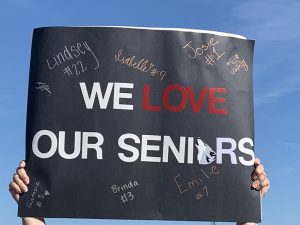 Lindsey
#22
Isabelle #9
Josie
#1
WE LOVE
OUR SENIORS
Brinda
#13
Emilie
#7